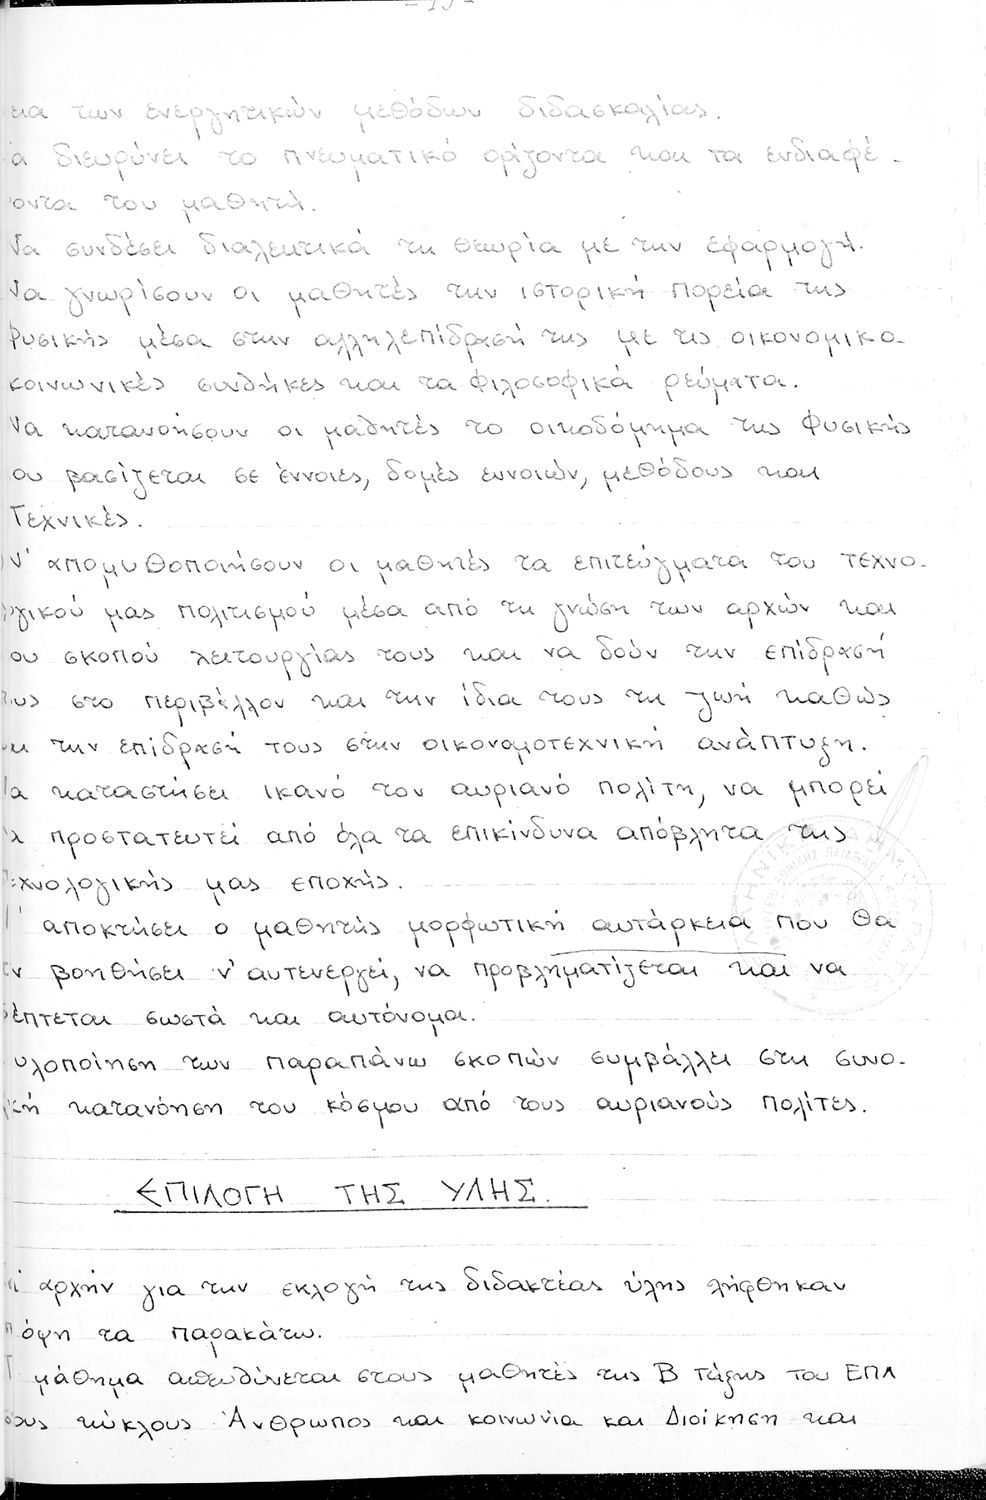 των ενεργητικών μεθόδων διδασκαλίας.
διευρύνει το πνευματικό ορίζοντα και τα ενδιαφέ-
οντα του μαθητή.
Να συνδέσει διαλεκτικά τη θεωρία με την εφαρμογή.
Να γνωρίσουν οι μαθητές την ιστορική πορεία της
Φυσικής μέσα στην αλληλεπίδρασή της με τις οικονομικο-
κοινωνικές συνθήκες και τα φιλοσοφικά ρεύματα.
Να κατανοήσουν οι μαθητές το οικοδόμημα της Φυσικής
ου βασίζεται σε έννοιες, δομές εννοιών, μεθόδους και
Τεχνικές.
Ν' απομυθοποιήσουν οι μαθητές τα επιτεύγματα του τεχνο-
γικού μας πολιτισμού μέσα από τη γνώση των αρχών και
ου σκοπού λειτουργίας τους και να δούν την επίδρασή
υς στο περιβάλλον και την ίδια τους τη ζωή καθώς
αι την επίδρασή τους στην οικονομοτεχνική ανάπτυξη.
α καταστήσει ικανό τον αυριανό πολίτη, να μπορεί
α προστατευτεί από όλα τα επικίνδυνα απόβλητα της
εχνολογικής μας εποχής.
' αποκτήσει ο μαθητής μορφωτική αυτάρκεια που θα
ν βοηθήσει ν' αυτενεργεί, να προβληματίζεται και να
έπτεται σωστά και αυτόνομα.
υλοποίηση των παραπάνω σκοπών συμβάλλει στη συνο-
κή κατανόηση του κόσμου από τους αυριανούς πολίτες.
ΕΠΙΛΟΓΗ ΤΗΣ ΥΛΗΣ.
αρχήν για την εκλογή της διδακτέας ύλης λήφθηκαν
όψη τα παρακάτω.
μάθημα απευθύνεται στους μαθητές της Β τάξης του ΕΠΛ
ους κύκλους Άνθρωπος και κοινωνία και Διοίκηση και